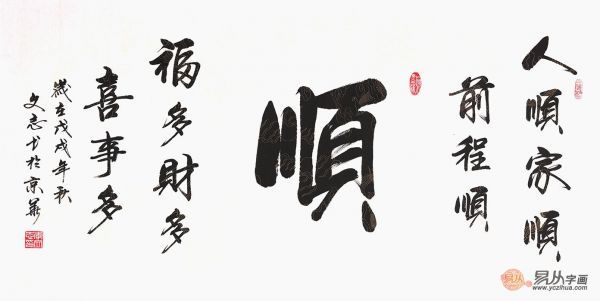 人順家順
前程順
順
福多財多
喜事多
歲在戊戌年秋
文志书於京華
易从字画
www.yczihua.com